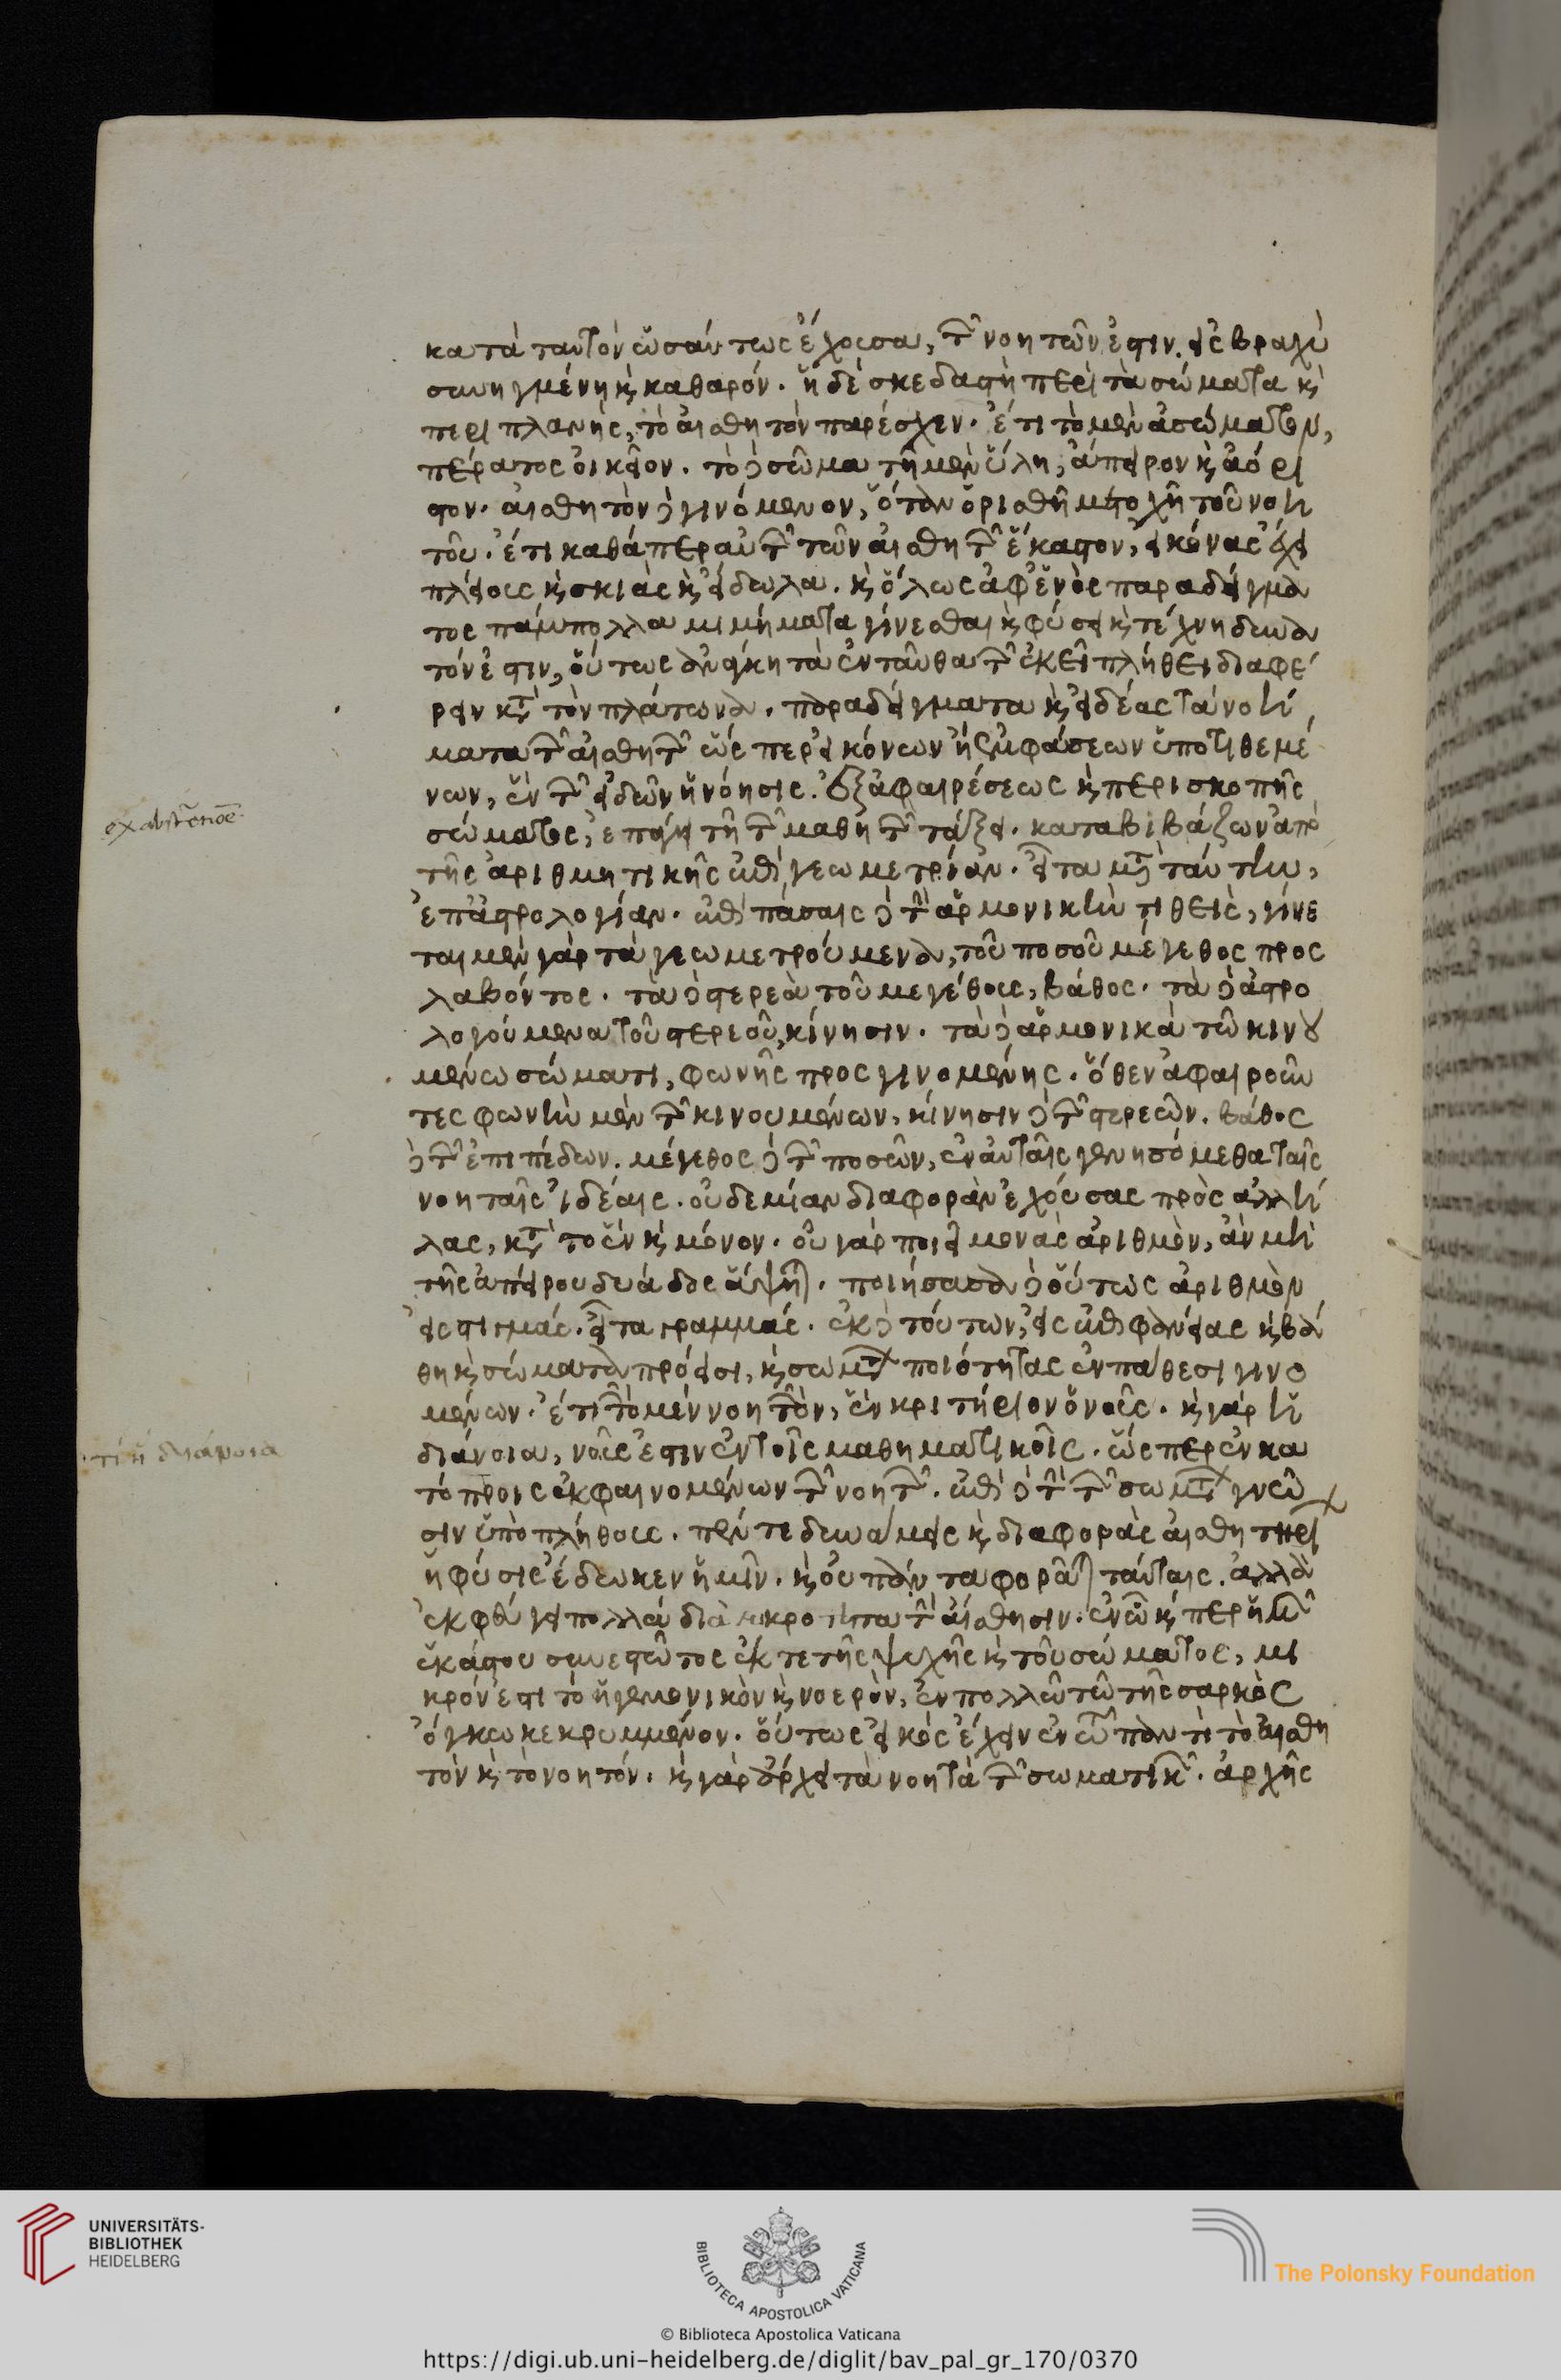 κατὰ ταυτὸν ὡσαύτως ἔχουσα, τῶν νοητῶν ἐστιν. εἰς βραχὺ
συνηγμένη καὶ καθαρόν. ἡ δὲ σκεδαστὴ περὶ τὰ σώματα καὶ
περιπλανὴς, τὸ αἰσθητὸν παρέσχεν. ἔτι τὸ μὲν ἀσώματον,
πέρατος οἰκεῖον. τὸ δὲ σῶμα τῆ μὲν ὕλη, ἄπειρον καὶ ἀόρι
στον. αἰσθητὸν δὲ γινόμενον, ὅταν ὁρισθῆ μετοχῆ τοῦ νοη
τοῦ. ἔτι καθάπερ αὐτῶν τῶν αἰσθητῶν ἕκαστον, εἰκόνας ἔχει
πλείους καὶ σκιὰς καὶ εἴδωλα. καὶ ὅλως ἀφ' ἑνὸς παραδείγμα
τος πάμπολλα μιμήματα γίνεσθαι καὶ φύσει καὶ τέχνη δυνα
τόν ἐστιν, οὕτως ἀνάγκη τὰ ἐνταῦθα τῶν ἐκεῖ πλήθει διαφέ
ρειν κατὰ τὸν πλάτωνα. παραδείγματα καὶ ἰδέας τὰ νοή
ματα τῶν αἰσθητῶν ὥσπερ εἰκόνων ἢ ἐμφάσεων ὑποτιθεμέ
νων, ἓν τῶν εἰδῶν ἡ νόησις. ἐξ ἀφαιρέσεως καὶ περισκοπῆς
σώματος, ἐπάγει τῆ τῶν μαθημάτων τάξει. καταβιβάζων ἀπὸ
τῆς ἀριθμητικῆς ἐπὶ γεωμετρίαν. εἶτα μετὰ ταύτην,
ἐπ' ἀστρολογίαν. ἐπὶ πάσαις δὲ τὴν ἁρμονικὴν τιθεὶς, γίνε
ται μὲν γὰρ τὰ γεωμετρούμενα, τοῦ ποσοῦ μέγεθος προς
λαβόντος. τὰ δὲ στερεὰ τοῦ μεγέθους, βάθος. τὰ δὲ ἀστρο
λογούμενα τοῦ στερεοῦ, κίνησιν. τὰ δὲ ἁρμονικὰ τῶ κινου
μένω σώματι, φωνῆς προς γινομένης. ὅθεν ἀφαιροῦν
τες φωνὴν μὲν τῶν κινουμένων, κίνησιν δὲ τῶν στερεῶν. βάθος
δὲ τῶν ἐπιπέδων. μέγεθος δὲ τῶν ποσῶν, ἐν αὐταῖς γενησόμεθα ταῖς
νοηταῖς ἰδέαις. οὐδεμίαν διαφορὰν ἐχούσας πρὸς ἀλλή
λας, κατὰ τὸ ἓν καὶ μόνον. οὐ γὰρ ποιεῖ μονὰς ἀριθμὸν, ἂν μὴ
τῆς ἀπείρου δυάδος ἅψηται. ποιήσασα δὲ οὕτως ἀριθμὸν
εἰς στιγμάς. εἶτα γραμμάς. ἐκ δὲ τούτων, εἰς ἐπιφανείας καὶ βά
θη καὶ σώματα πρόεισι, καὶ σωμάτων ποιότητας ἐν πάθεσι γινο
μένων. ἔτι τῶν μὲν νοητῶν, ἓν κριτήριον ὁ νοῦς. καὶ γὰρ ἡ
διάνοια, νοῦς ἐστιν ἐν τοῖς μαθηματικοῖς. ὥσπερ ἐν κα
τόπτροις ἐκφαινομένων τῶν νοητῶν. ἐπὶ δὲ τὴν τῶν σωμάτων γνῶ
σιν ὑπὸ πλήθους. πέντε δυνάμεις καὶ διαφορὰς αἰσθητηρίων
ἡ φύσις ἔδωκεν ἡμῖν. καὶ οὐ πάντα φορᾶται ταύταις. ἀλλὰ
ἐκφεύγει πολλὰ διὰ μικρότητα τὴν αἴσθησιν. ἐν ᾧ καίπερ ἡμῶν
ἑκάστου συνεστῶτος ἐκ τε τῆς ψυχῆς καὶ τοῦ σώματος, μι
κρόν ἐστι τὸ ἡγεμονικὸν καὶ νοερὸν, ἐν πολλῶ τῶ τῆς σαρκὸς
ὄγκω κεκρυμμένον. οὕτως εἰκὸς ἔχειν ἐν τῶ παντὶ τὸ αἰσθη
τὸν καὶ τὸ νοητόν. καὶ γὰρ ἄρχει τὰ νοητὰ τῶν σωματικῶν. ἀρχῆς
τί ἡ διάνοια
UNIVERSITÄTS-
BIBLIOTHEK
HEIDELBERG
BIBLIOTECA APOSTOLICA VATICANA
The Polonsky Foundation
© Biblioteca Apostolica Vaticana
https://digi.ub.uni-heidelberg.de/diglit/bav_pal_gr_170/0370